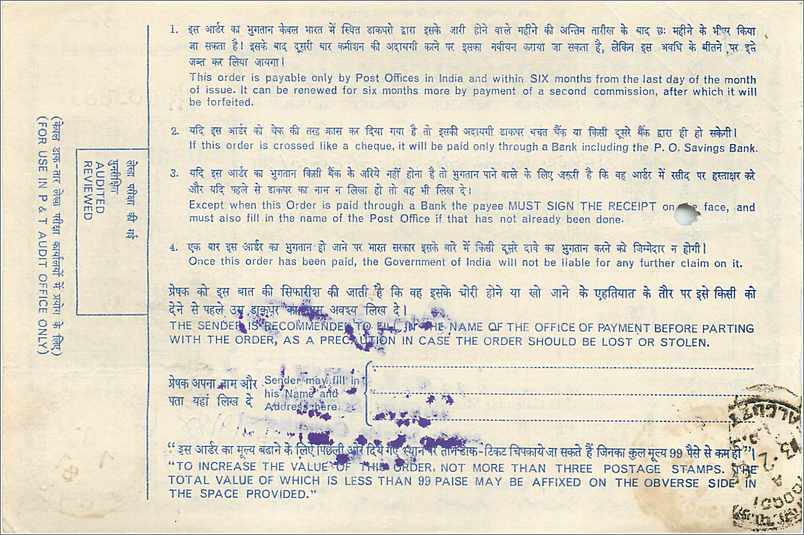 1. इस आर्डर का भुगतान केवल भारत में स्थित डाकघरों द्वारा इसके जारी होने वाले महीने की अन्तिम तारीख के बाद छः महीने के भीतर किया
जा सकता है। इसके बाद दूसरी बार कमीशन की अदायगी करने पर इसका नवीयन कराया जा सकता है, लेकिन इस अवधि के बीतने पर इसे
जब्त कर लिया जायगा।
This order is payable only by Post Offices in India and within SIX months from the last day of the month
of issue. It can be renewed for six months more by payment of a second commission, after which it will
be forfeited.
2. यदि इस आर्डर को चेक की तरह क्रास कर दिया गया है तो इसकी अदायगी डाकघर बचत बैंक या किसी दूसरे बैंक द्वारा ही हो सकेगी।
If this order is crossed like a cheque, it will be paid only through a Bank including the P. O. Savings Bank.
3. यदि इस आर्डर का भुगतान किसी बैंक के जरिये नहीं होना है तो भुगतान पाने वाले के लिए जरूरी है कि वह आर्डर में रसीद पर हस्ताक्षर करे
और यदि पहले से डाकघर का नाम न लिखा हो तो वह भी लिख दे।
Except when this Order is paid through a Bank the payee MUST SIGN THE RECEIPT on face, and
must also fill in the name of the Post Office if that has not already been done.
4. एक बार इस आर्डर का भुगतान हो जाने पर भारत सरकार इसके बारे में किसी दूसरे दावे का भुगतान करने को जिम्मेदार न होगी।
Once this order has been paid, the Government of India will not be liable for any further claim on it.
प्रेषक को इस बात की सिफारीश की जाती है कि वह इसके चोरी होने या खो जाने के एहतियात के तौर पर इसे किसी को
देने से पहले उस डाकघर का नाम अवश्य लिख दे।
THE SENDER IS RECOMMENDED TO FILL IN THE NAME OF THE OFFICE OF PAYMENT BEFORE PARTING
WITH THE ORDER, AS A PRECAUTION IN CASE THE ORDER SHOULD BE LOST OR STOLEN.
प्रेषक अपना नाम और
पता यहां लिख दे
Sender may fill in
his Name and
Address here.
"इस आर्डर का मूल्य बढाने के लिए पिछली ओर दिये गए स्थान पर तीन डाक-टिकट चिपकाये जा सकते हैं जिनका कुल मूल्य 99 पैसे से कम हो"।
"TO INCREASE THE VALUE OF THIS ORDER, NOT MORE THAN THREE POSTAGE STAMPS. THE
TOTAL VALUE OF WHICH IS LESS THAN 99 PAISE MAY BE AFFIXED ON THE OBVERSE SIDE IN
THE SPACE PROVIDED."
(केवल डाक-तार लेखा परीक्षा कार्यालयों में प्रयोग के लिए)
(FOR USE IN P & T AUDIT OFFICE ONLY)
लेखा परीक्षा की गई
पुनरीक्षित
AUDITED
REVIEWED